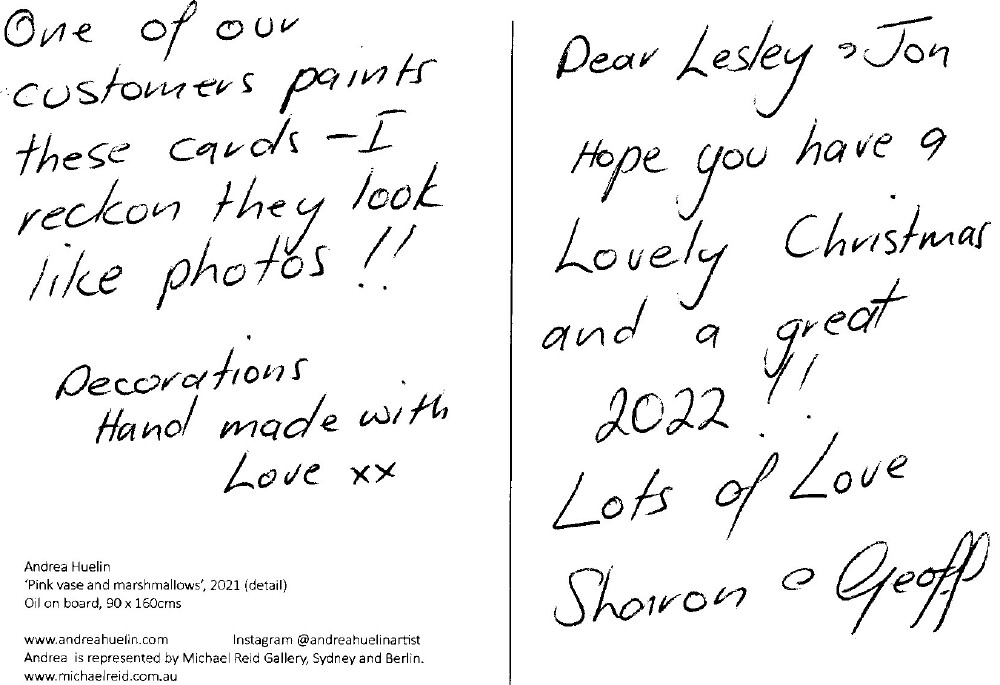 One of our
customers paints
these cards - I
reckon they look
like photos !!
Decorations
Hand made with
Love xx
Andrea Huelin
'Pink vase and marshmallows', 2021 (detail)
Oil on board, 90 x 160cms
www.andreahuelin.com Instagram @andreahuelinartist
Andrea is represented by Michael Reid Gallery, Sydney and Berlin.
www.michaelreid.com.au
Dear Lesley & Jon
Hope you have a
Lovely Christmas
and a great
2022 !!
Lots of Love
Sharon & Geoff